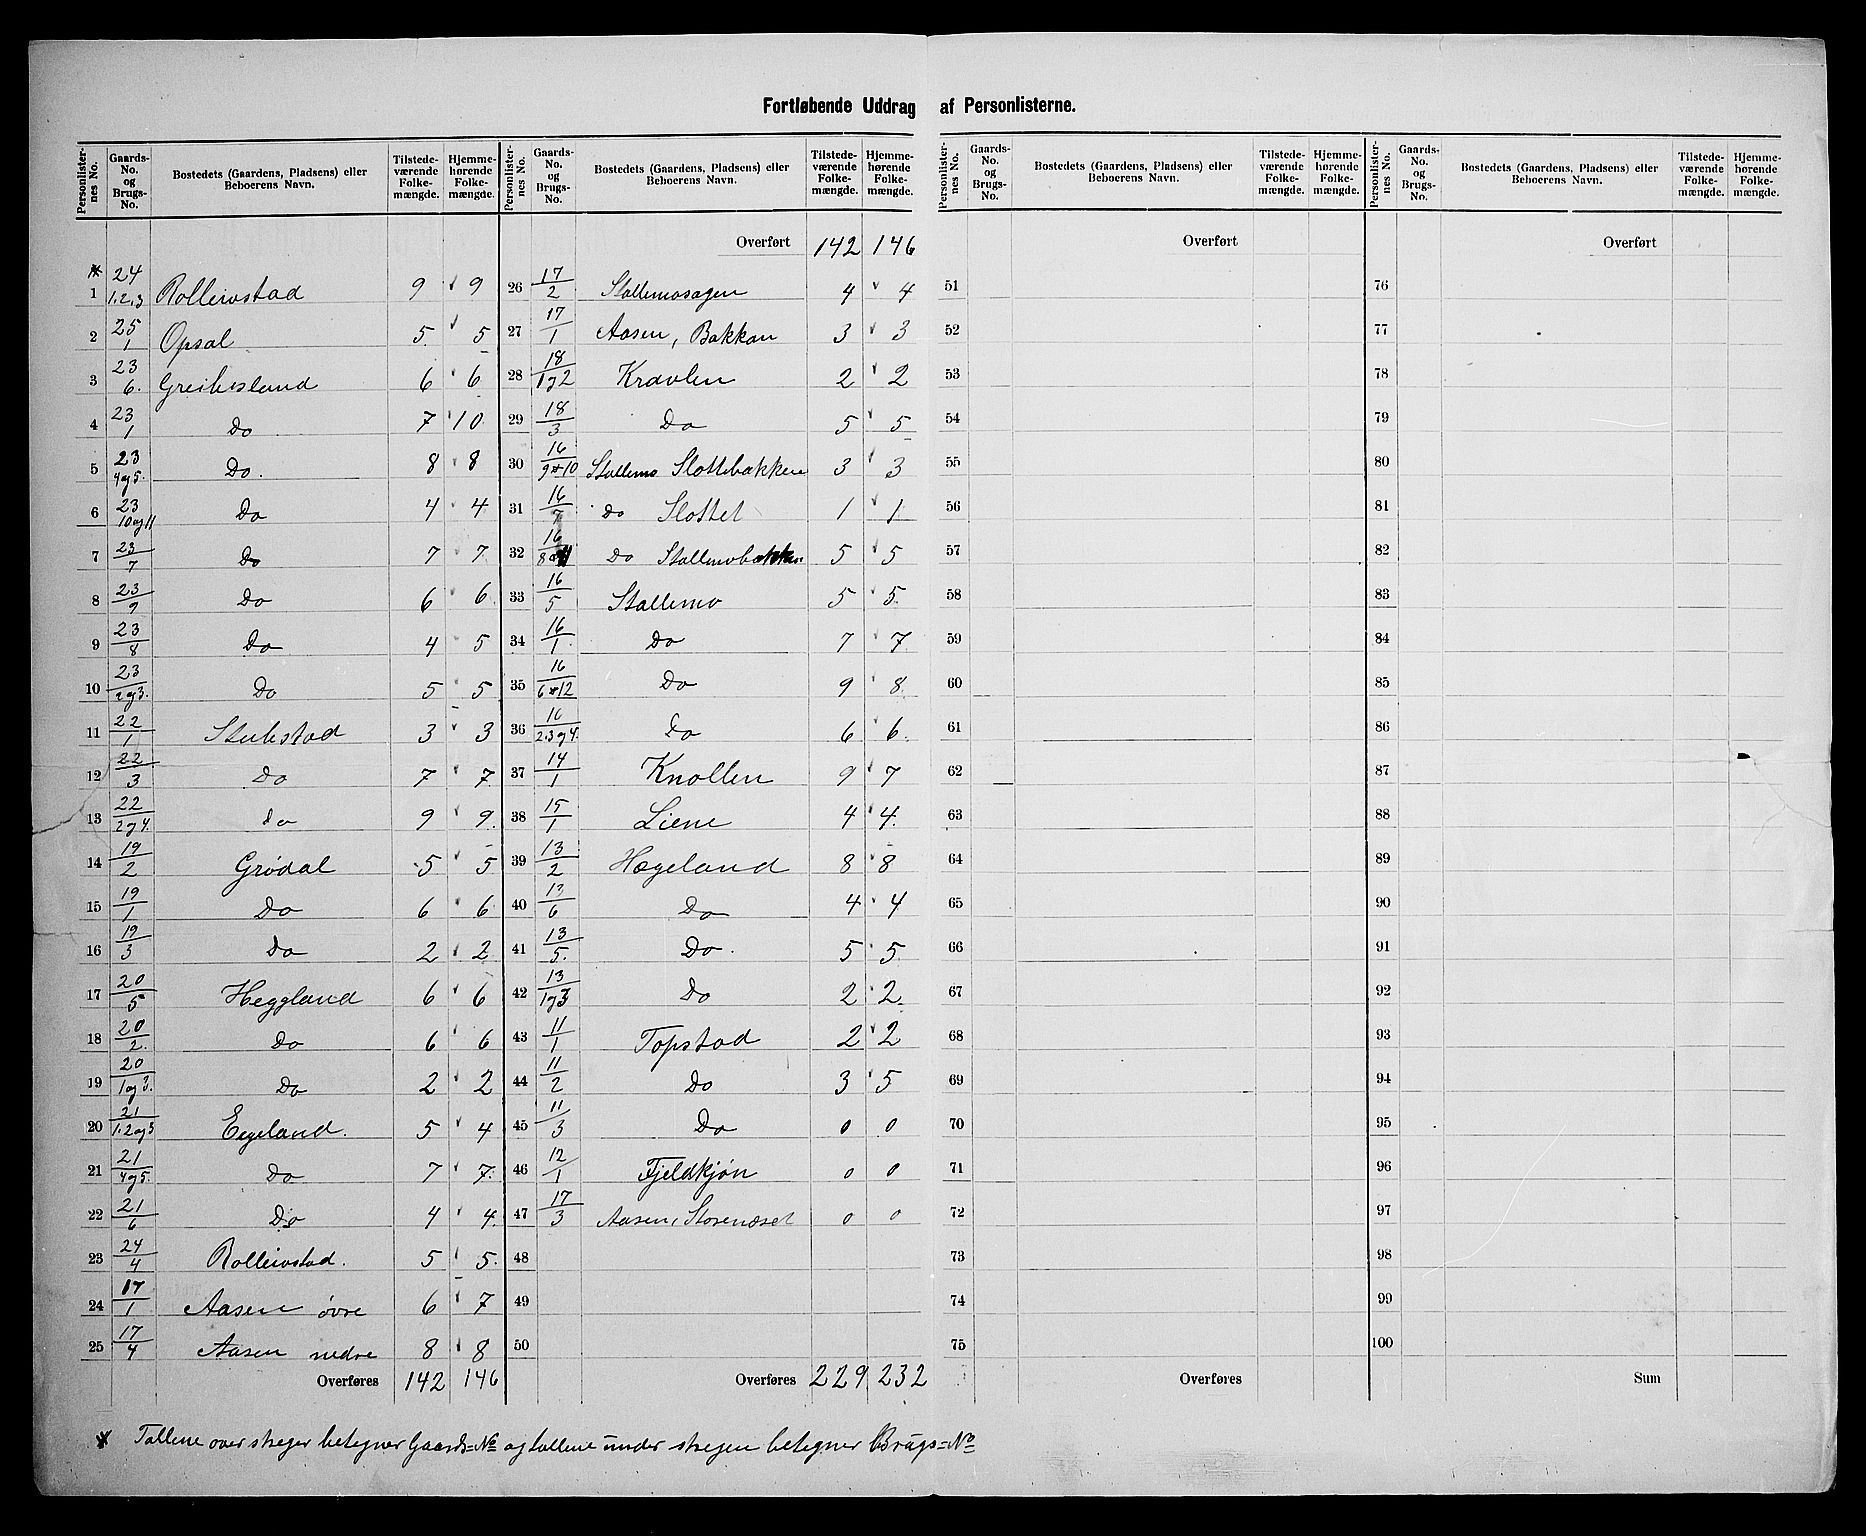 Fortløbende Uddrag af Personlisterne.
Personlisternes No. | Gaards-No. og Brugs-No. | Bostedets (Gaardens, Pladsens) eller Beboerens Navn. | Tilstedeværende Folkemængde. | Hjemmehørende Folkemængde.
* 1 | 24 / 1.2.3 | Rolleivstad | 9 | 9
2 | 25 / 1 | Opsal | 5 | 5
3 | 23 / 6. | Greibesland | 6 | 6
4 | 23 / 1 | Do | 7 | 10
5 | 23 / 4 og 5. | Do. | 8 | 8
6 | 23 / 10 og 11 | Do | 4 | 4
7 | 23 / 7 | Do | 7 | 7
8 | 23 / 9 | Do | 6 | 6
9 | 23 / 8 | Do | 4 | 5
10 | 23 / 2 og 3. | Do | 5 | 5
11 | 22 / 1 | Stubstad | 3 | 3
12 | 22 / 3 | Do | 7 | 7
13 | 22 / 2 og 4. | do | 9 | 9
14 | 19 / 2 | Grødal | 5 | 5
15 | 19 / 1 | Do | 6 | 6
16 | 19 / 3 | Do | 2 | 2
17 | 20 / 5 | Heggland | 6 | 6
18 | 20 / 2. | Do | 6 | 6
19 | 20 / 1 og 3. | Do | 2 | 2
20 | 21 / 1.2 og 3 | Eigeland. | 5 | 4
21 | 21 / 4 og 5. | Do | 7 | 7
22 | 21 / 6 | Do | 4 | 4
23 | 24 / 4 | Rolleivstad. | 5 | 5
24 | 17 / 1 | Aasen øvre | 6 | 7
25 | 17 / 4 | Aasen nedre | 8 | 8
Overføres 142 146
Personlisternes No. | Gaards-No. og Brugs-No. | Bostedets (Gaardens, Pladsens) eller Beboerens Navn. | Tilstedeværende Folkemængde. | Hjemmehørende Folkemængde.
Overført 142 146
26 | 17 / 2 | Stallemosagen | 4 | 4
27 | 17 / 1 | Aasen, Bakkan | 3 | 3
28 | 18 / 1 og 2 | Kravlen | 2 | 2
29 | 18 / 3 | Do | 5 | 5
30 | 16 / 9 + 10 | Stallemo Slottebakken | 3 | 3
31 | 16 / 7 | Do Slottet | 1 | 1
32 | 16 / 8 | Do Stallemobakken | 5 | 5
33 | 16 / 5 | Stallemo | 5 | 5
34 | 16 / 1. | Do | 7 | 7
35 | 16 / 6 + 12 | Do | 9 | 8
36 | 16 / 2.3 og 4. | Do | 6 | 6
37 | 14 / 1 | Knollen | 9 | 7
38 | 15 / 1 | Liene | 4 | 4
39 | 13 / 2 | Hægeland | 8 | 8
40 | 13 / 6 | Do | 4 | 4
41 | 13 / 5. | Do. | 5 | 5
42 | 13 / 1 og 3 | Do | 2 | 2
43 | 11 / 1 | Topstad | 2 | 2
44 | 11 / 2 | Do | 3 | 5
45 | 11 / 3 | Do | 0 | 0
46 | 12 / 1 | Fjeldkjøn | 0 | 0
47 | 17 / 3 | Aasen, Storenæset | 0 | 0
48
49
50
Overføres 229 232
Personlisternes No. | Gaards-No. og Brugs-No. | Bostedets (Gaardens, Pladsens) eller Beboerens Navn. | Tilstedeværende Folkemængde. | Hjemmehørende Folkemængde.
Overført
51
52
53
54
55
56
57
58
59
60
61
62
63
64
65
66
67
68
69
70
71
72
73
74
75
Overføres
Personlisternes No. | Gaards-No. og Brugs-No. | Bostedets (Gaardens, Pladsens) eller Beboerens Navn. | Tilstedeværende Folkemængde. | Hjemmehørende Folkemængde.
Overført
76
77
78
79
80
81
82
83
84
85
86
87
88
89
90
91
92
93
94
95
96
97
98
99
100
Sum
* Tallene over streger betegner Gaards=No og tallene under stregen betegner Brugs=No